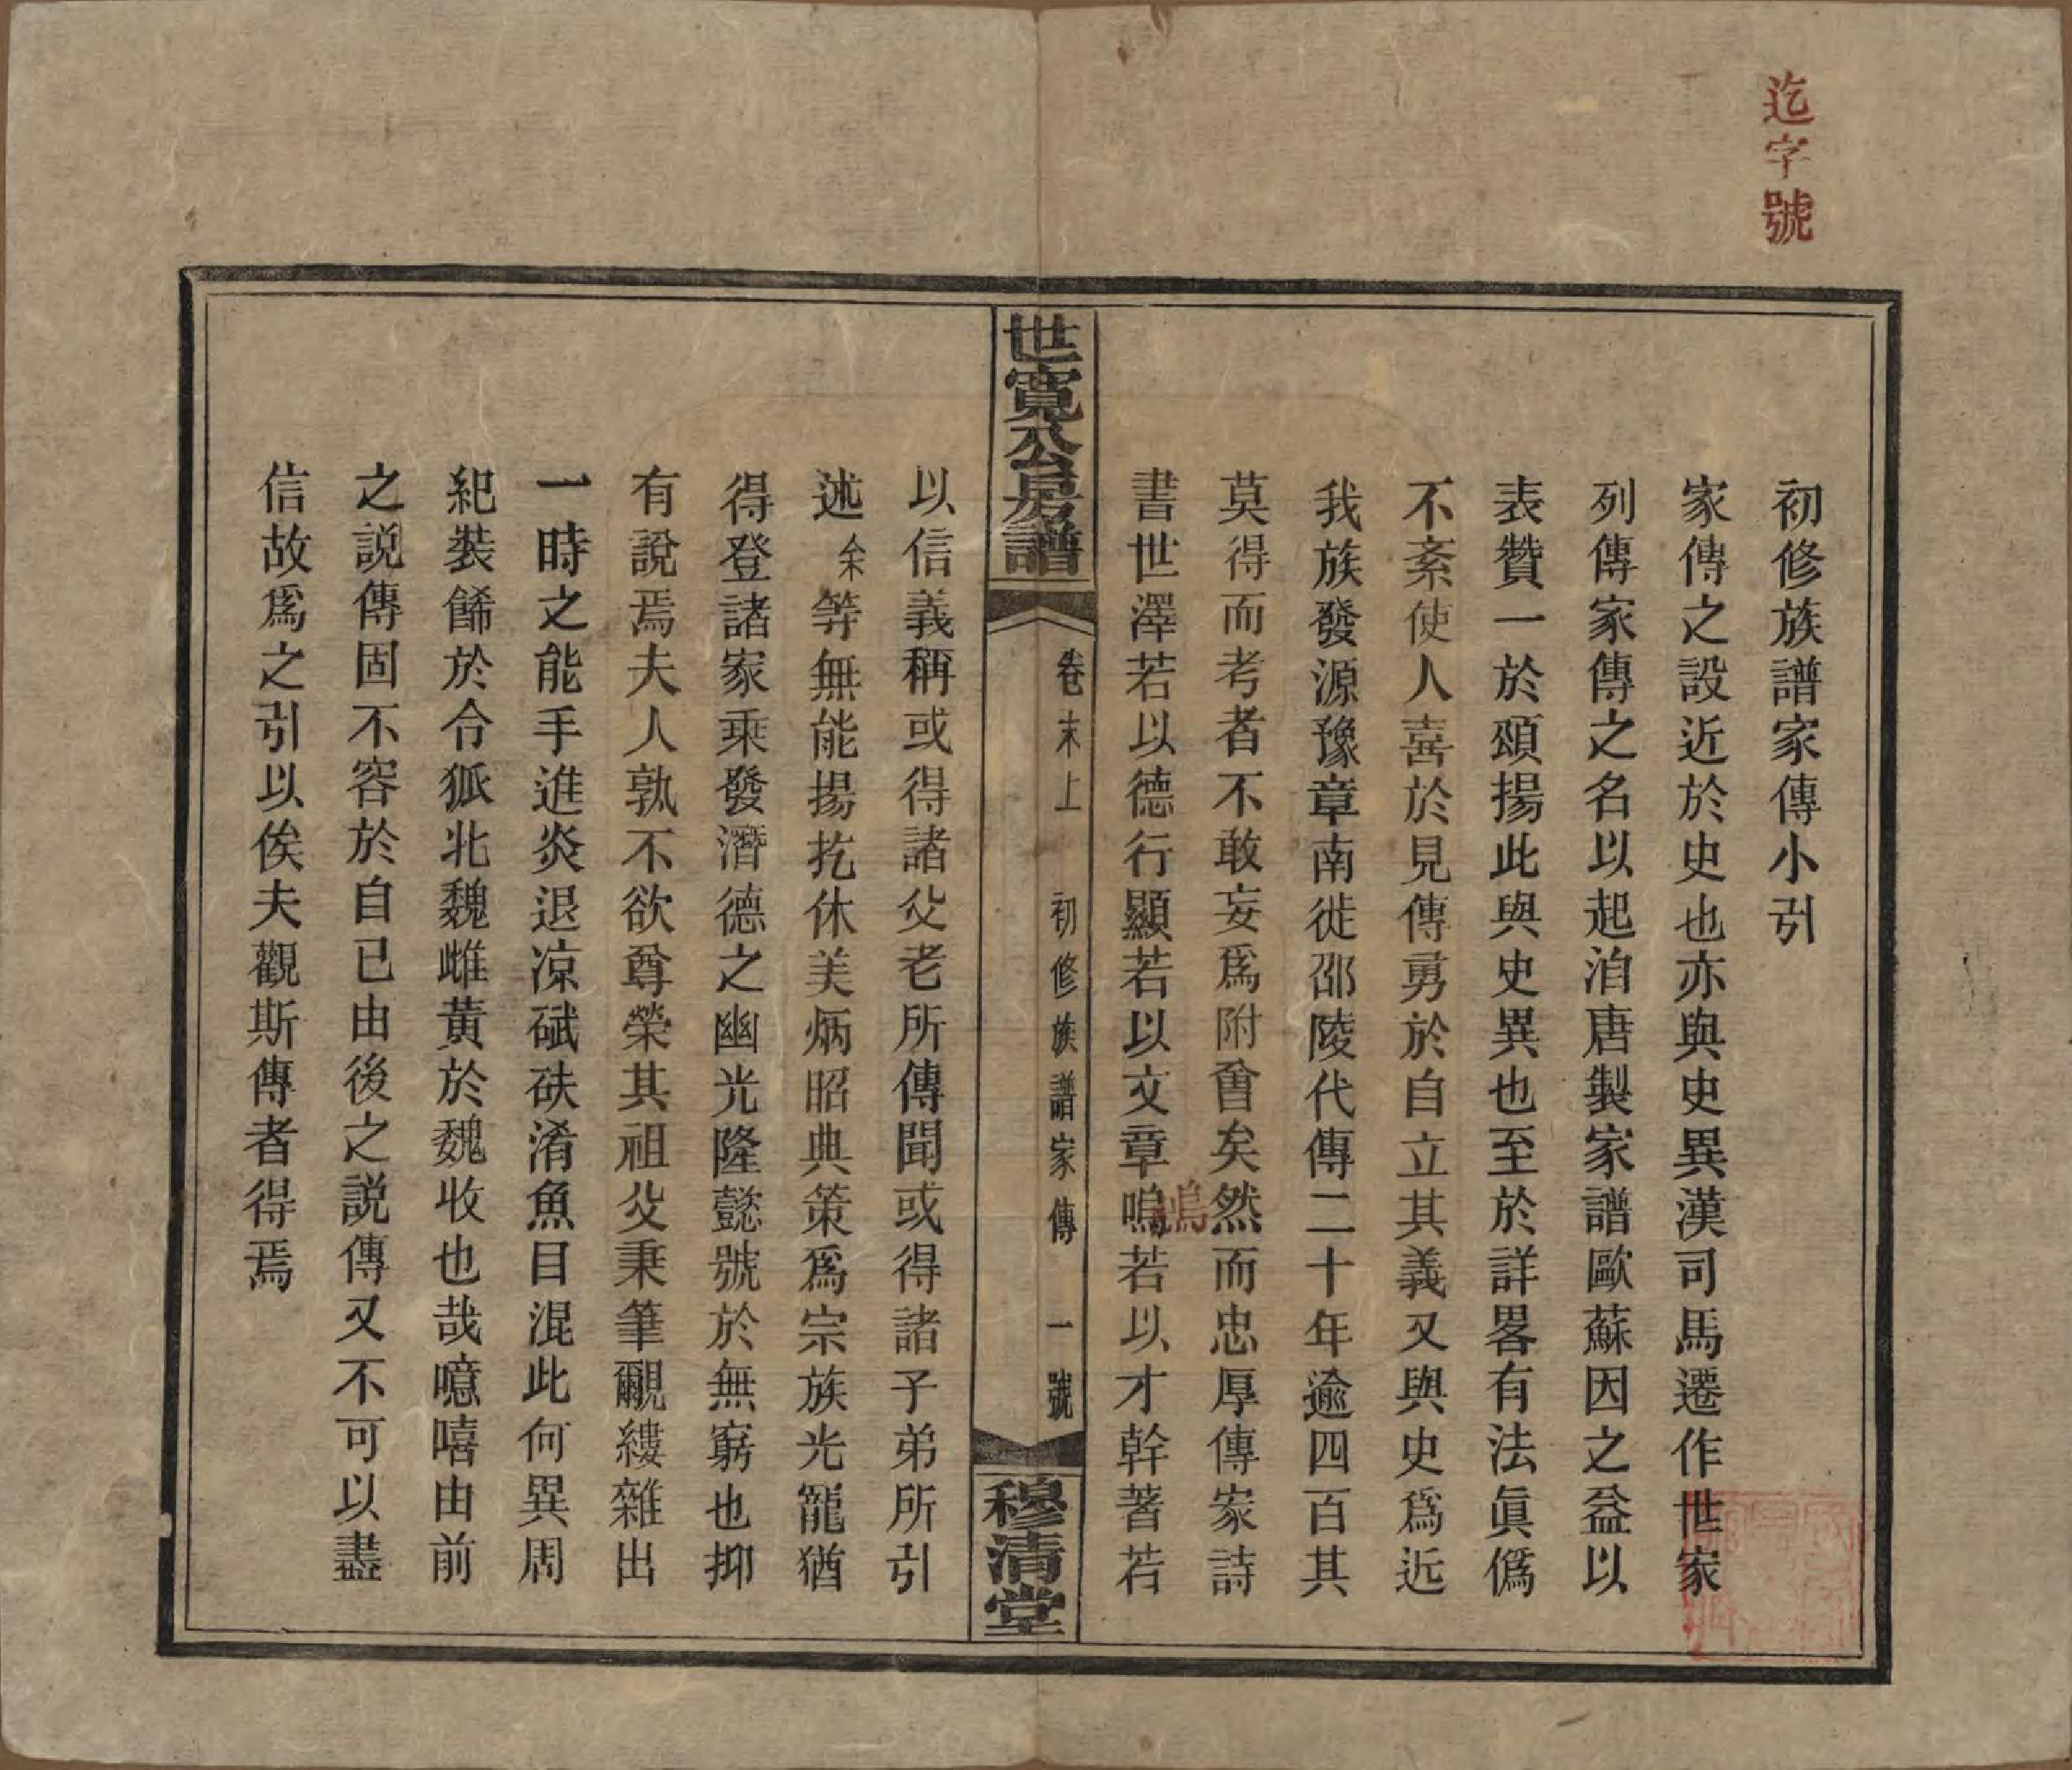 迄字號
初修族譜家傳小引
家傳之設近於史也亦與史異漢司馬遷作世家
列傳家傳之名以起洎唐製家譜歐蘇因之益以
表贊一於頌揚此與史異也至於詳畧有法眞僞
不紊使人喜於見傳勇於自立其義又與史爲近
我族發源豫章南徙邵陵代傳二十年逾四百其
莫得而考者不敢妄爲附會矣然而忠厚傳家詩
書世澤若以德行顯若以文章鳴若以才幹著若
鳴
世寬公房譜
卷末上
初修族譜家傳
一號
穆清堂
以信義稱或得諸父老所傳聞或得諸子弟所引
述余等無能揚扢休美炳昭典策爲宗族光寵猶
得登諸家乘發潛德之幽光隆懿號於無窮也抑
有說焉夫人孰不欲尊榮其祖父秉筆覼縷雜出
一時之能手進炎退凉碔砆淆魚目混此何異周
紀裝餙於令狐北魏雌黃於魏收也哉噫嘻由前
之説傳固不容於自已由後之説傳又不可以盡
信故爲之引以俟夫觀斯傳者得焉